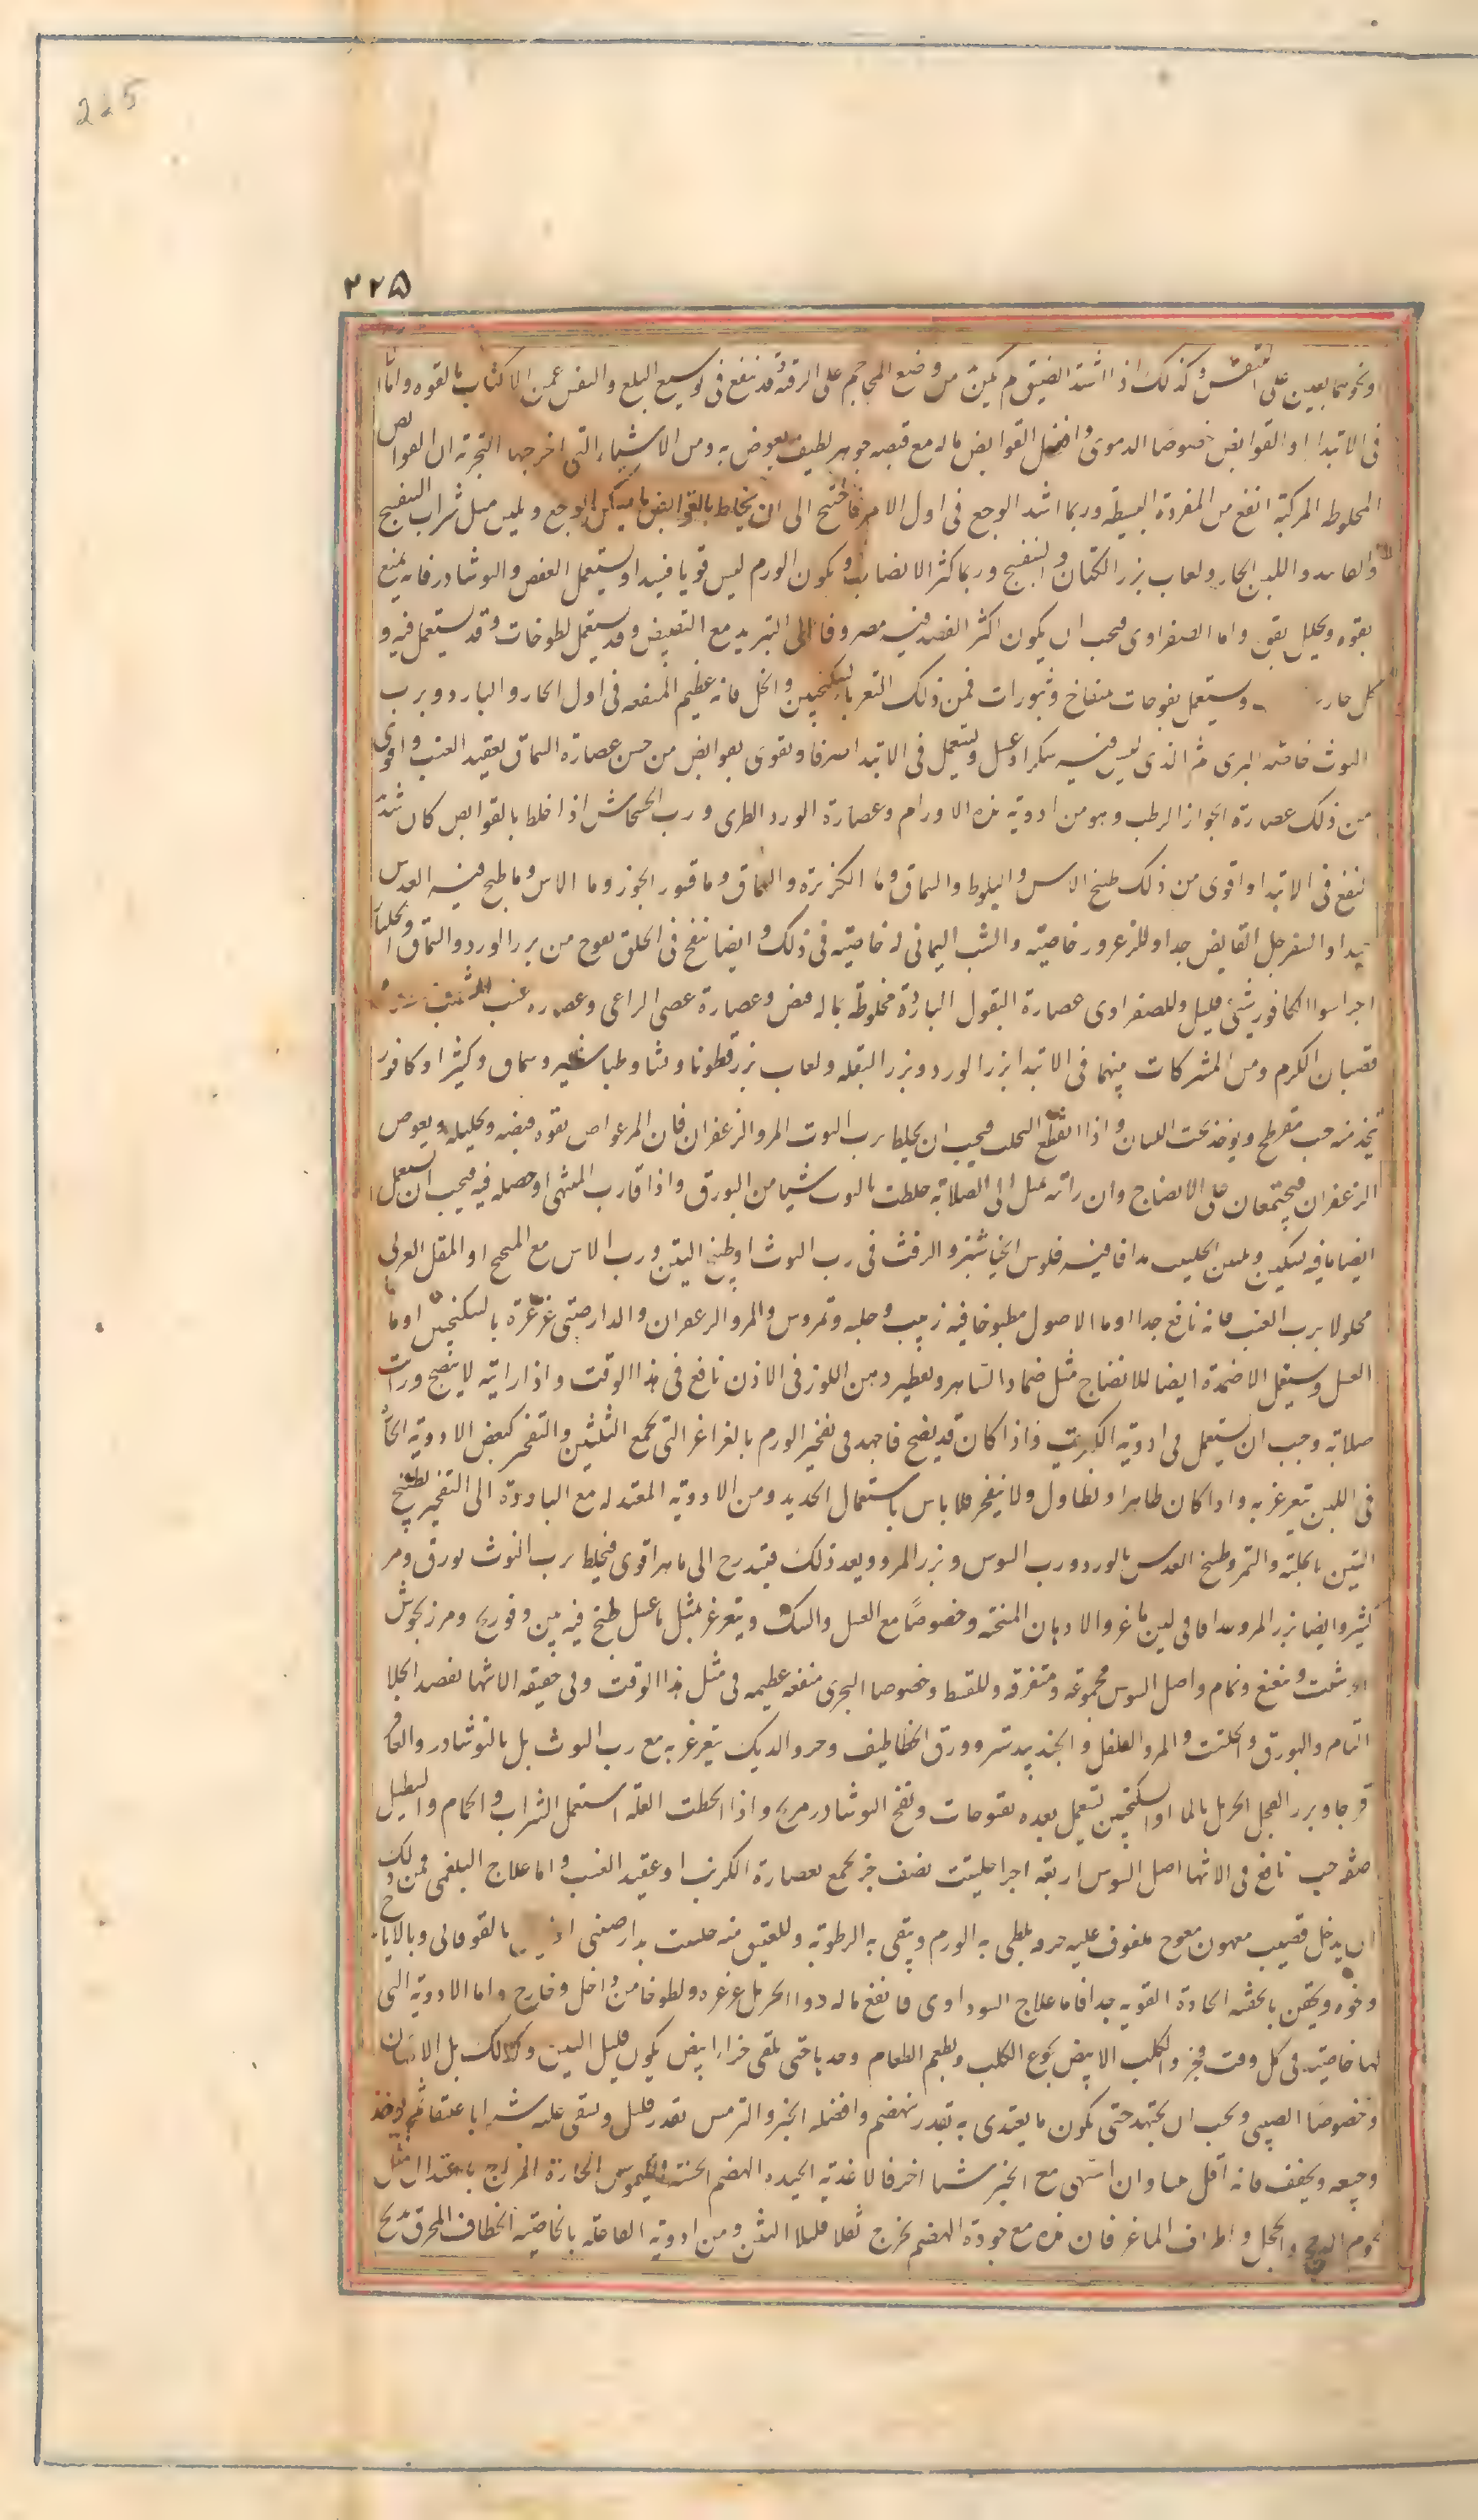 225
٢٢٥
ونحوهما بعدين على التنفس وكذلك اذا اشتد الضيق لم يكن من وضع المحاجم على الرقبة قد ينفع فى توسيع البلع والنفس واما
فى الابتدا او القوابض خصوصا الدموى وافضل القوابض ماله مع قبضه جوهر لطيف يغوص به ومن الاشياء التى اخرجها التجربة ان القوابض
المخلوطه المركبة انفع من المفردة البسيطه وربما اشتد الوجع فى اول الامر فاحتيج الى ان يخلط بالقوابض ما يسكن الوجع ويلين مثل شراب البنفسج
واللبن الحار ولعاب بزر الكتان والبنفسج وربما كثر الانصباب ويكون الورم ليس قويا فيبدا ويستعمل العفص والنوشادر فانه يمنع
بقوه ويحلل بقوه واما الصفراوى فيجب ان يكون اكثر القصد فيه مصروفا الى التبريد مع القبض وقد يستعمل لطوخات وقد يستعمل فيه و
كل حار ويستعمل نفوخات منفاخ ونثورات فمن ذلك التغرغر بالسكنجبين والخل فانه عظيم المنفعه فى اول الحار والبارد وبرب
التوث خاصة البرى ثم الذى ليس فيه سكر او عسل ويستعمل فى الابتدا صرفا ويقوى بقوابض من جنس عصارة السماق بعقيد العنب واقوى
من ذلك عصارة الجوز الرطب وهو من ادوية هذه الاورام وعصارة الورد الطرى ورب الخشخاش اذا خلط بالقوابض كان شديد
نفع فى الابتدا واقوى من ذلك طبيخ الاس والبلوط والسماق وماء الكزبرة والسماق وما قشور الجوز وما الاس وما طبخ فيه العدس
جيدا والسفرجل القابض جدا وللزعرور خاصية والشب اليمانى له خاصية فى ذلك وايضا ينفخ فى الحلق نفوخ من بزر الورد والسماق
اجزا سوا الكافور شئ قليل وللصفراوى عصارة البقول الباردة مخلوطة بما له قبض وعصارة عصى الراعى وعصاره عنب الثعلب
قضبان الكرم ومن المشتركات بينهما فى الابتدا بزر الورد وبزر البقله ولعاب بزر قطونا ونشا وطباشير وسماق وكثيرا وكافور
يتخذ منه حب مفرطح ويؤخذ تحت اللسان واذا انقطع التحلب فيجب ان يخلط برب التوت المر والزعفران فان المر غواص بقوه قبضه وتحليله ويغوص
الزعفران فيجتمعان على الانضاج وان رايته يميل الى الصلابة خلطت بالتوت شيئا من البورق واذا قارب المنتهى او حصله فيه فيجب ان يستعمل
ايضا ما فيه تسكين وتليين الحليب مدافا فيه فلوس الخيار شنبر والزفت فى رب التوث او طبيخ التين ورب الاس مع الميبختج او المقل العربى
محلولا برب العنب فانه نافع جدا او ماء الاصول مطبوخا فيه زبيب وحلبه وتمر والمر والزعفران والدارصينى غرغرة بالسكنجبين او ماء
العسل ويستعمل الاضمدة ايضا للانضاج مثل ضماد وتقطير دهن اللوز فى الاذن نافع فى هذا الوقت واذا رايته لا ينضج ورايت
صلابة وجب ان يستعمل فى ادويته الكبريت فاذا كان قد نضج فاجهد فى تفجير الورم بالغراغر التى تجمع التليين والتفجير كبعض الادوية الحاره
فى اللبن يتغرغر به واذا كان ظاهرا وتطاول ولا ينفجر فلا باس باستعمال الحديد ومن الادوية المعتدله مع المبادرة الى التفجير طبيخ
التين بالحلبة والتمر وطبيخ العدس بالورد ورب السوس وبزر المرو وبعد ذلك يتدرج الى ما هو اقوى فيخلط برب التوث بورق ومر
كثير وايضا بزر المرو مدافا فى لبن ماعز والادهان المنتنه وخصوصا مع العسل والسك ويتغرغر بمثل ما عسل طبخ فيه تين وفودنج ومرزنجوش
او شبت ونعنع ونمام واصل السوس مجموعة ومتفرقه وللقسط وخصوصا البحرى منفعه عظيمه فى مثل هذا الوقت وفى حقيقه الانتها يقصد الجلا
التام والبورق والحلتيت والمر والفلفل والجندبيدستر وورق الخطاطيف وخرو الديك يتغرغر به مع رب التوث بل بالنوشادر والعاقر
قرحا وبزر الفجل الحرمل بالما او السكنجبين يستعمل بعده نفوخات ونفخ النوشادر مريح واذا انحطت العلة استعمل الشراب والحمام والتطيل
صفه حب نافع فى الانتها اصل السوس اربعة اجزا حلتيت نصف جز يجمع بعصارة الكرنب او عقيد العنب واما علاج البلغمى فمن ذلك
ان يدخل قضيب مدهون معوج ملفوف عليه خرقه يلطى به الورم وينقى به الرطوبة وللعتيق منه حلتيت بدارصينى بالقوقايا وبالايارج
ونحوه ويحقن بالحقنه الحادة القويه جدا فاما علاج السوداوى فانفع ماله دوا الحرمل غرغره ولطوخا من داخل وخارج واما الادوية التى
لها خاصية فى كل وقت فخرو الكلب الابيض يجوع الكلب ويطعم العظام وحدها حتى يلقى خرا ابيض يكون قليل النتن وكذلك زبل الانسان
وخصوصا الصبى ويجب ان يجتهد حتى يكون ما يغتذى به بقدر ينهضم وافضله الخبز والترمس بقدر قليل ويسقى عليه شرابا عتيقا ثم يؤخذ
رجيعه ويجفف فانه اقل نتنا وان اشتهى مع الخبز شيئا اخر فالاغذية الجيده الهضم الحسنة الكيموس الحارة المزاج باعتدال مثل
لحوم الدجاج والحجل واطراف الماعز فان هذه مع جودة الهضم يخرج ثفلا قليلا النتن ومن ادوية الفاعله بالخاصية الخطاف المحرق يذبح